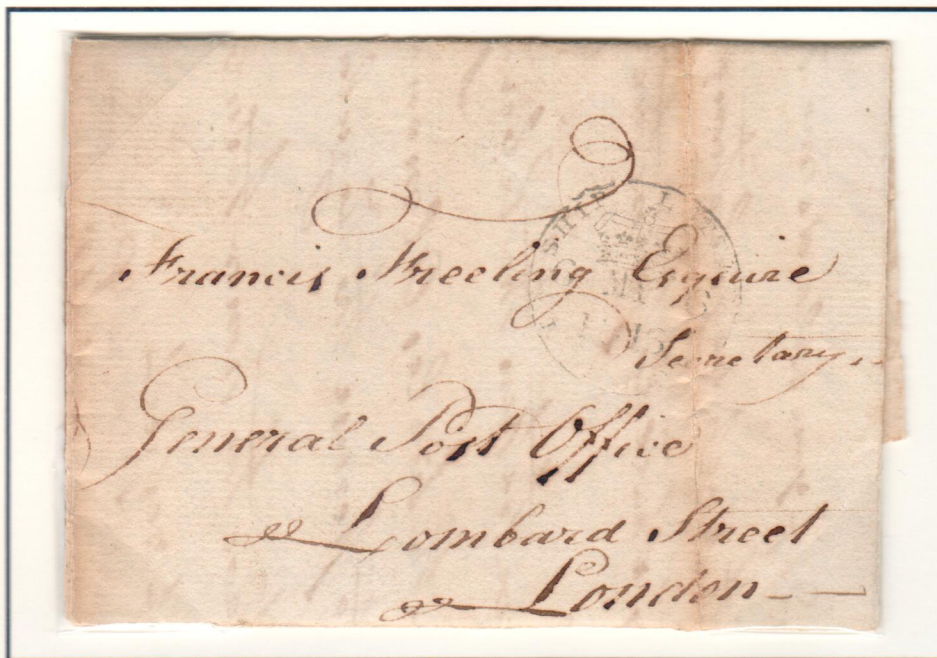 SHIP
Francis Freeling Esquire
Secretary
General Post Office
Lombard Street
London